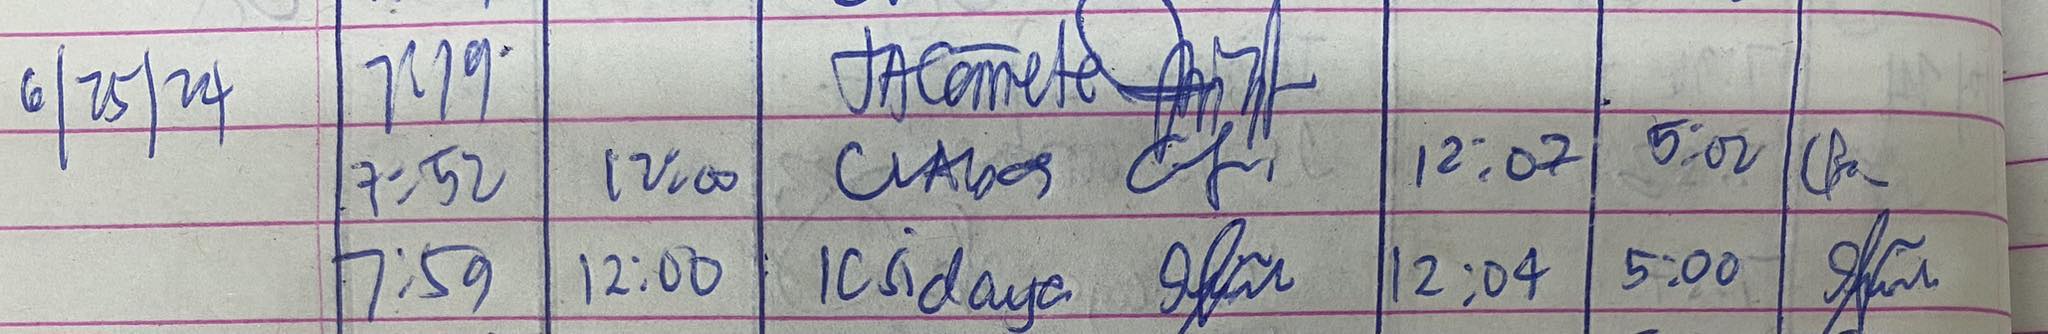 6/25/24 7:19 JACamete
7:52 12:00 CLAbos 12:07 5:02
7:59 12:00 ICsidaya 12:04 5:00